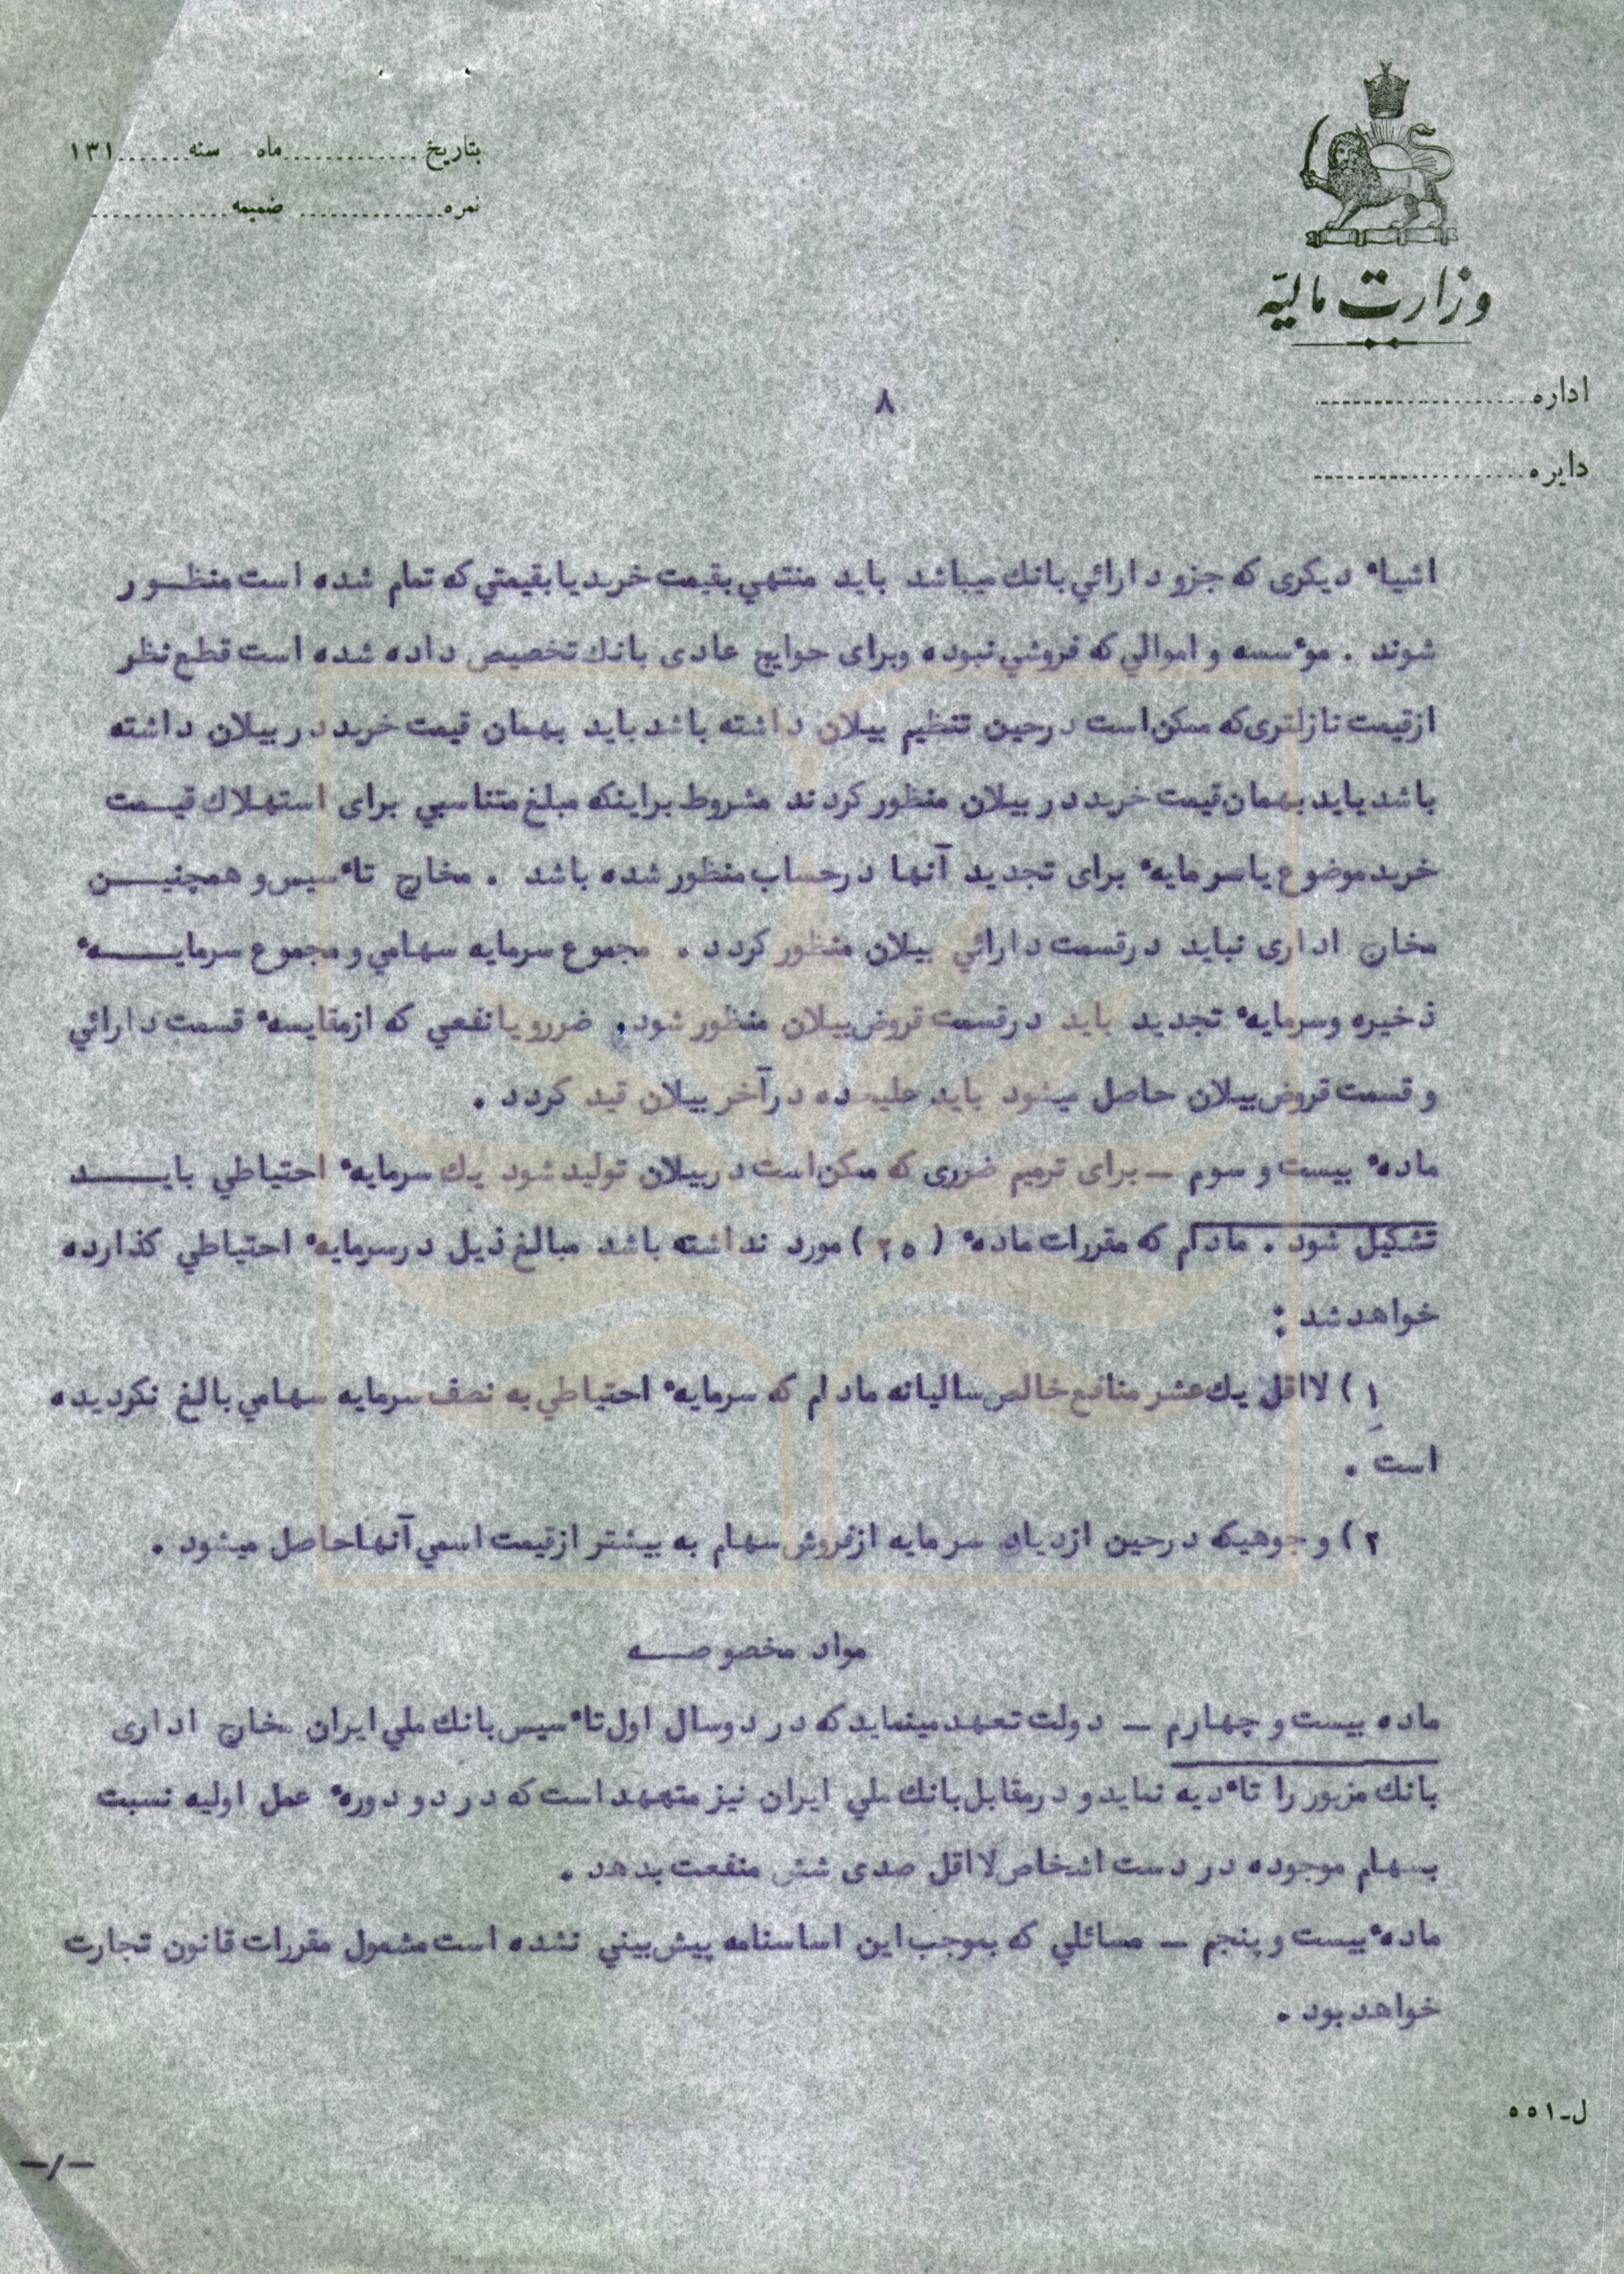 بتاریخ.............ماه سنه.......۱۳۱
نمره............. ضمیمه.............
وزارت مالیّه
اداره......................
دایره......................
۸
اشیاء دیکری که جزو دارائي بانك میباشد باید منتهي بقیمت خرید یا بقیمتي که تمام شده است منظـــور
شوند . موٴسسه و اموالي که فروشي نبوده وبرای حوایج عادی بانك تخصیص داده شده است قطع نظر
از قیمت نازلتری که ممکن است در حین تنظیم بیلان داشته باشد باید بهمان قیمت خرید در بیلان داشته
باشد یاید بهمان قیمت خرید در بیلان منظور کردند مشروط براینکه مبلغ متناسبي برای استهلاك قیـــمت
خرید موضوع یا سرمایهٴ برای تجدید آنها در حساب منظور شده باشد . مخارج تاٴسیس و همچنیـــــن
مخارج اداری نباید در قسمت دارائي بیلان منظور کردد . مجموع سرمایه سهامي و مجموع سرمایـــــهٴ
ذخیره وسرمایهٴ تجدید باید در قسمت قروض بیلان منظور شود. ضرر و یا نفعي که از مقایسهٴ قسمت دارائي
و قسمت قروض بیلان حاصل میشود باید علیحده در آخر بیلان قید کردد .
مادهٴ بیست و سوم ــ برای ترمیم ضرری که ممکن است در بیلان تولید شود یك سرمایهٴ احتیاطي بایـــــد
تشکیل شود . مادام که مقررات مادهٴ ( ۲۵ ) مورد نداشته باشد مبالغ ذیل در سرمایهٴ احتیاطي کذارده
خواهد شد :
۱ ) لااقل یك عشر منافع خالص سالیانه مادام که سرمایهٴ احتیاطي به نصف سرمایه سهامي بالغ نکردیده
است .
۲ ) وجوهیکه در حین ازدیاد سرمایه از فروش سهام به بیشتر از قیمت اسمي آنها حاصل میشود .
مواد مخصوصـــه
ماده بیست و چهارم ــ دولت تعهد مینماید که در دو سال اول تاٴسیس بانك ملي ایران مخارج اداری
بانك مزبور را تاٴدیه نماید و در مقابل بانك ملي ایران نیز متعهد است که در دو دورهٴ عمل اولیه نسبت
بسهام موجوده در دست اشخاص لااقل صدی شش منفعت بدهد .
مادهٴ بیست و پنجم ــ مسائلي که بموجب این اساسنامه پیش بیني نشده است مشمول مقررات قانون تجارت
خواهد بود .
ل-۵۵۱
-/-